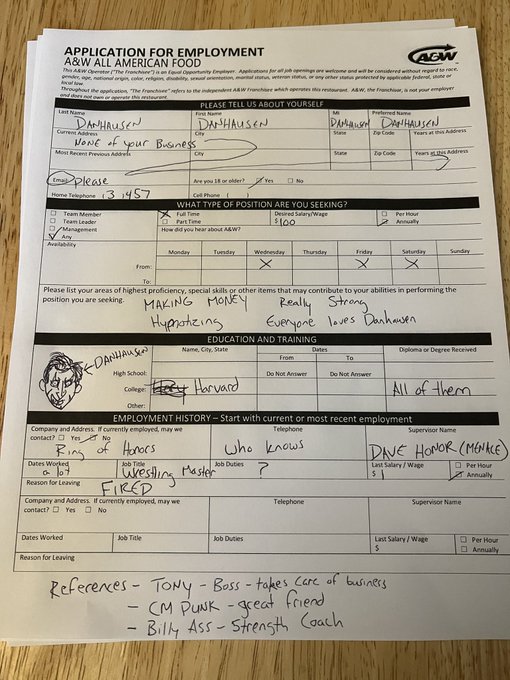 APPLICATION FOR EMPLOYMENT
A&W ALL AMERICAN FOOD
A&W
This A&W Operator ("The Franchisee") is an Equal Opportunity Employer. Applications for all job openings are welcome and will be considered without regard to race,
gender, age, national origin, color, religion, disability, sexual orientation, marital status, veteran status, or any other status protected by applicable federal, state or
local law.
Throughout the application, "The Franchisee" refers to the independent A&W Franchisee which operates this restaurant. A&W, the Franchisor, is not your employer
and does not own or operate this restaurant.
PLEASE TELL US ABOUT YOURSELF
Last Name First Name MI Preferred Name
DANHAUSEN DANHAUSEN DANHAUSEN DANHAUSEN
Current Address City State Zip Code Years at this Address
None of your Business
Most Recent Previous Address City State Zip Code Years at this Address
Email: please Are you 18 or older? Yes No
Home Telephone (3)457 Cell Phone ( )
WHAT TYPE OF POSITION ARE YOU SEEKING?
Team Member Full Time Desired Salary/Wage Per Hour
Team Leader Part Time $100 Annually
Management How did you hear about A&W?
Any
Availability Monday Tuesday Wednesday Thursday Friday Saturday Sunday
From: X X X
To:
Please list your areas of highest proficiency, special skills or other items that may contribute to your abilities in performing the
position you are seeking.
MAKING MONEY Really Strong
Hypnotizing Everyone loves Danhausen
EDUCATION AND TRAINING
DANHAUSEN
Name, City, State Dates Diploma or Degree Received
From To
High School: Do Not Answer Do Not Answer
College: Harvard All of them
Other:
EMPLOYMENT HISTORY – Start with current or most recent employment
Company and Address. If currently employed, may we Telephone Supervisor Name
contact? Yes No
Ring of Honors who knows DAVE HONOR (MENACE)
Dates Worked Job Title Job Duties Last Salary / Wage Per Hour
a lot Wrestling Master ? $1 Annually
Reason for Leaving
FIRED
Company and Address. If currently employed, may we Telephone Supervisor Name
contact? Yes No
Dates Worked Job Title Job Duties Last Salary / Wage Per Hour
$ Annually
Reason for Leaving
References - TONY - Boss - takes care of business
- CM PUNK - great friend
- Billy Ass - Strength Coach